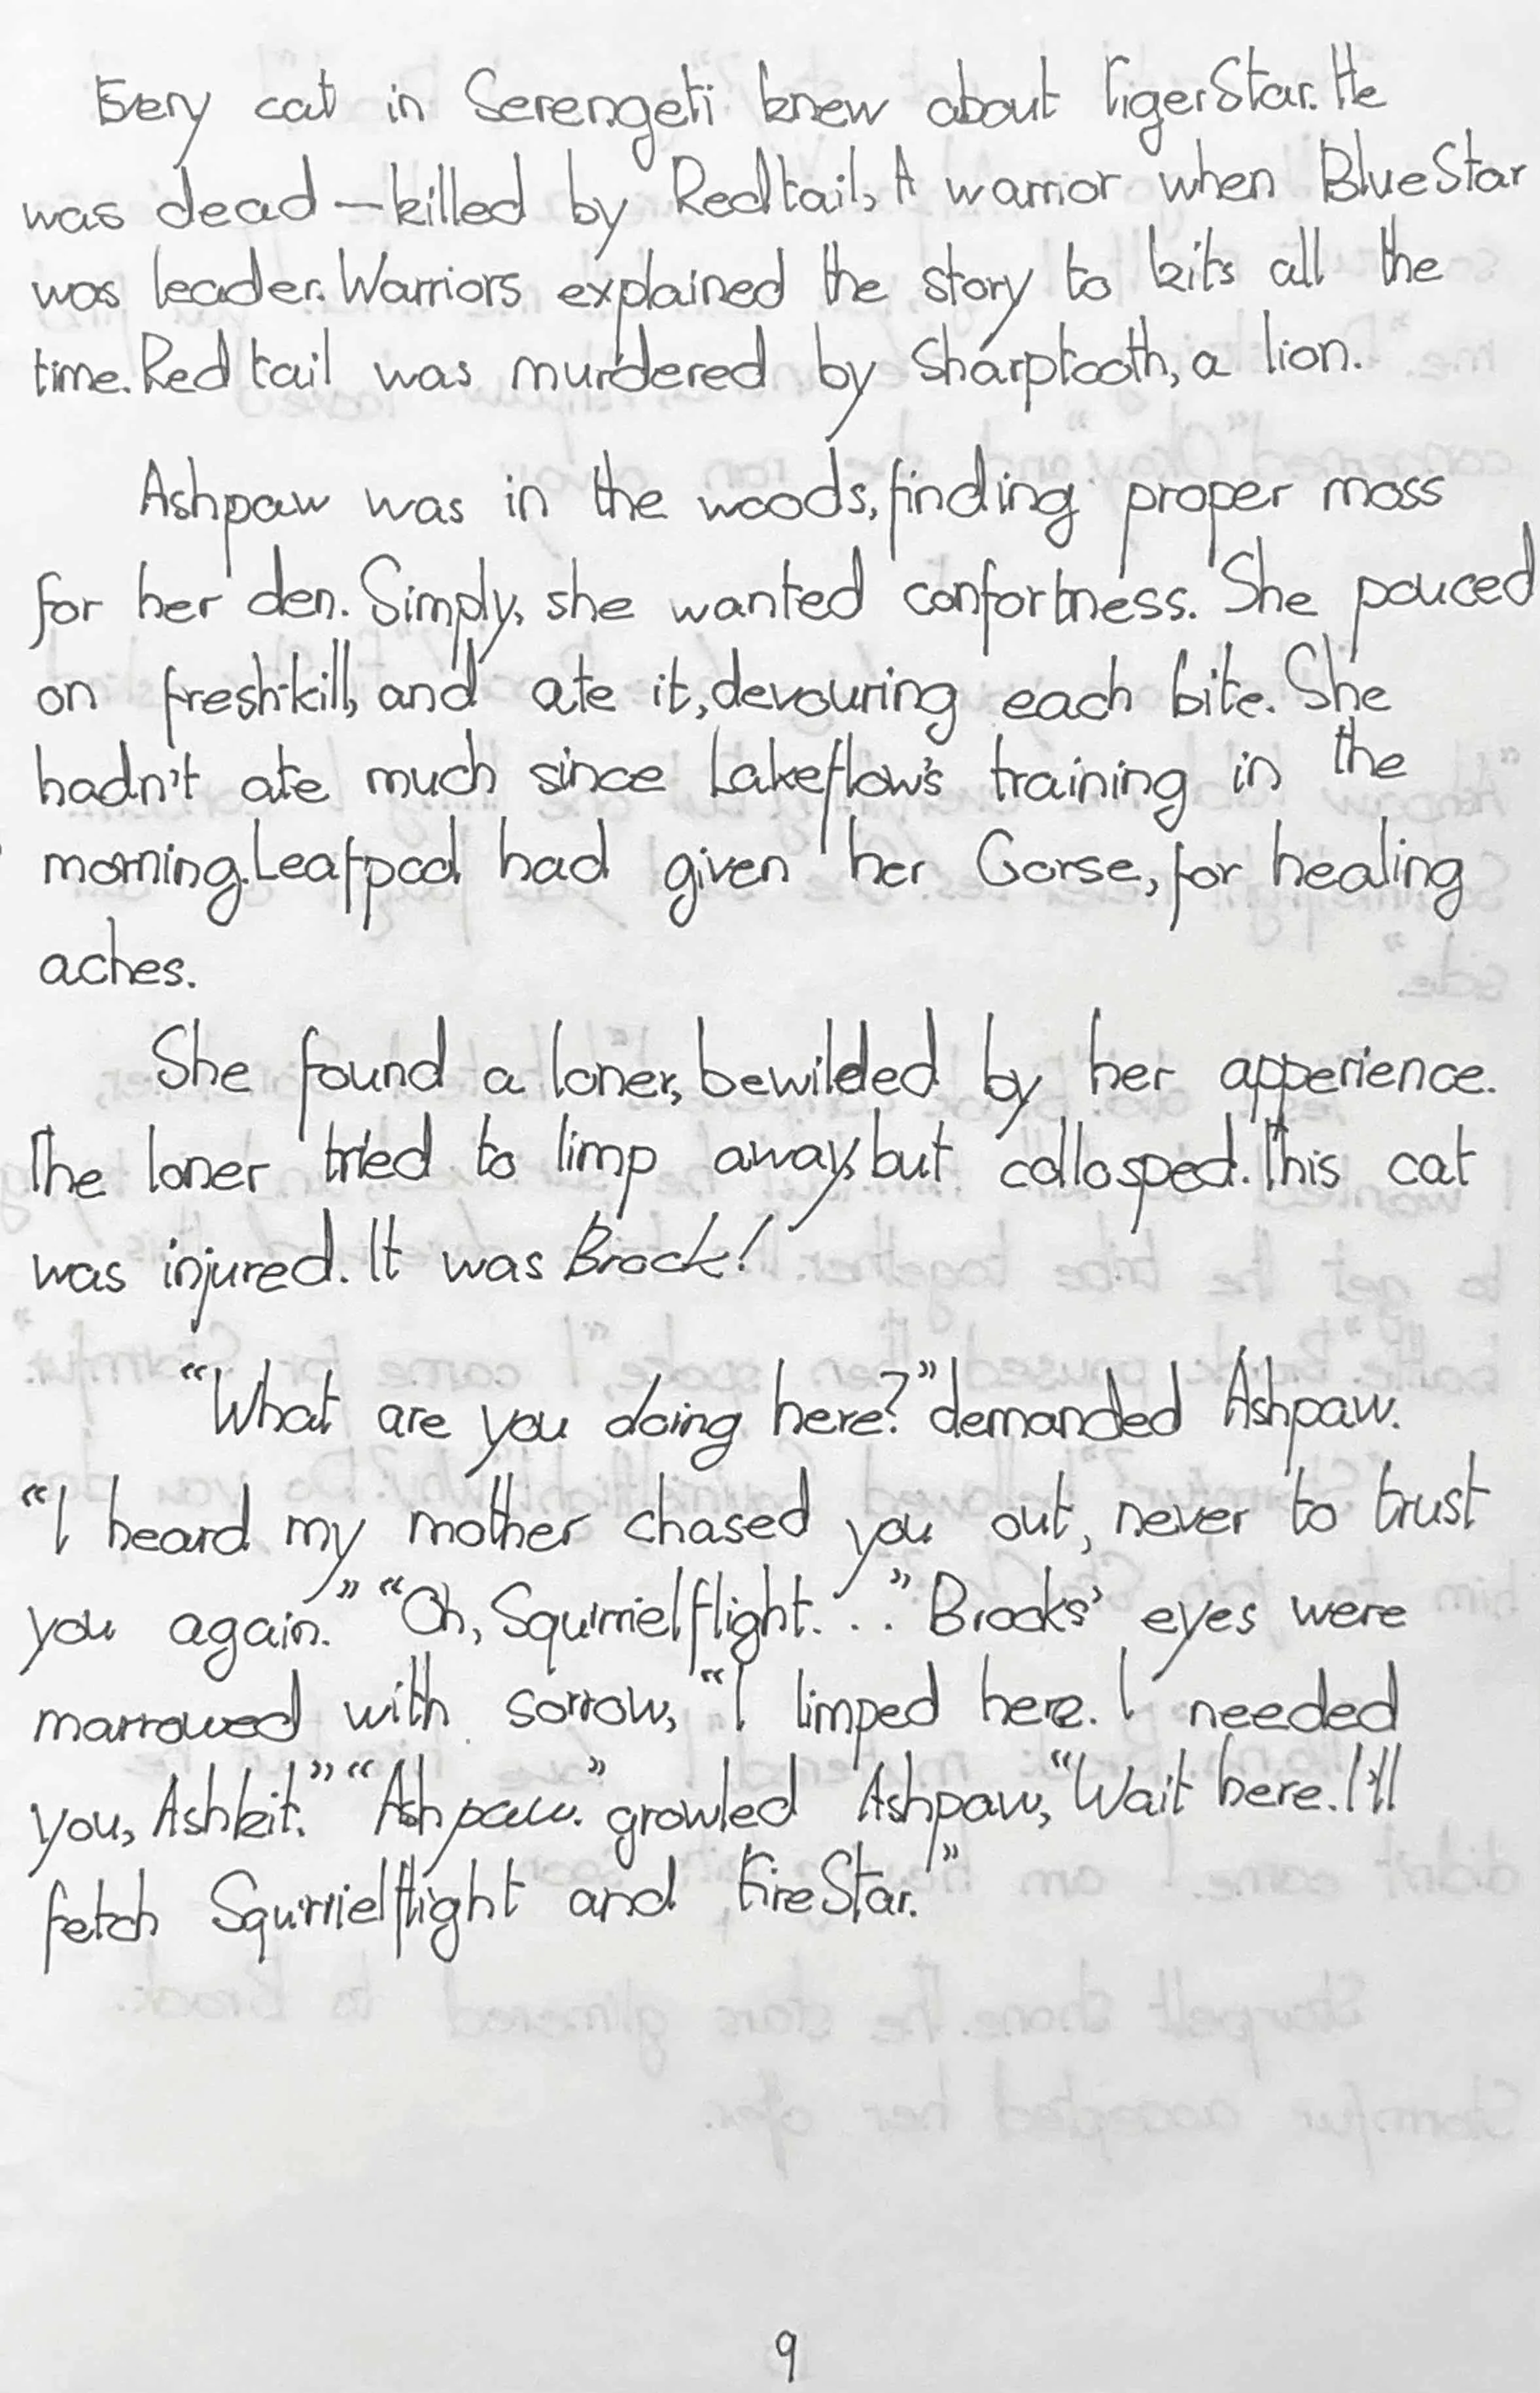 Every cat in Serengeti knew about TigerStar. He
was dead – killed by Redtail, A warrior when BlueStar
was leader. Warriors explained the story to kits all the
time. Red tail was murdered by Sharptooth, a lion.
Ashpaw was in the woods, finding proper moss
for her den. Simply, she wanted confortness. She pouced
on fresh-kill, and ate it, devouring each bite. She
hadn't ate much since Lakeflow's training in the
morning. Leafpool had given her Gorse, for healing
aches.
She found a loner, bewilded by her apperience.
The loner tried to limp away, but collosped. This cat
was injured. It was Brock!
"What are you doing here?" demanded Ashpaw.
"I heard my mother chased you out, never to trust
you again." "Oh, Squirrielflight. . ." Brocks' eyes were
marrowed with sorrow, "I limped here. I needed
you, Ashkit." "Ashpaw." growled Ashpaw, "Wait here. I'll
fetch Squirrielflight and FireStar."
9